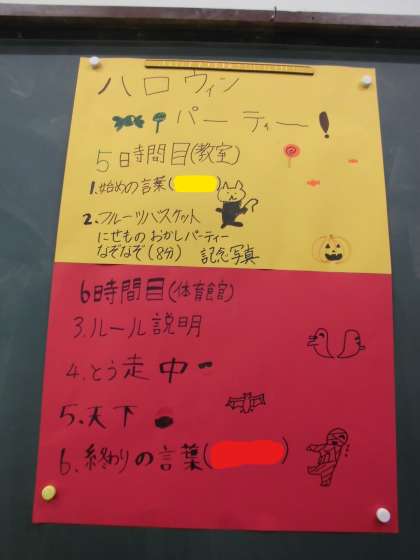 ハロウィン
パーティー!
5時間目(教室)
1.始めの言葉(
2.フルーツバスケット
にせもの おかしパーティー
なぞなぞ(8分) 記念写真
6時間目(体育館)
3.ルール説明
4.とう走中
5.天下
6.終わりの言葉(